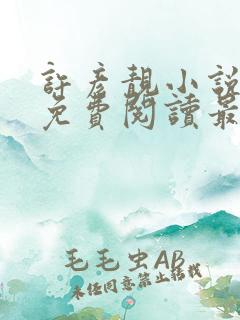 許彥靚小說
免費閱讀最
毛毛虫AB
未经同意禁止转载